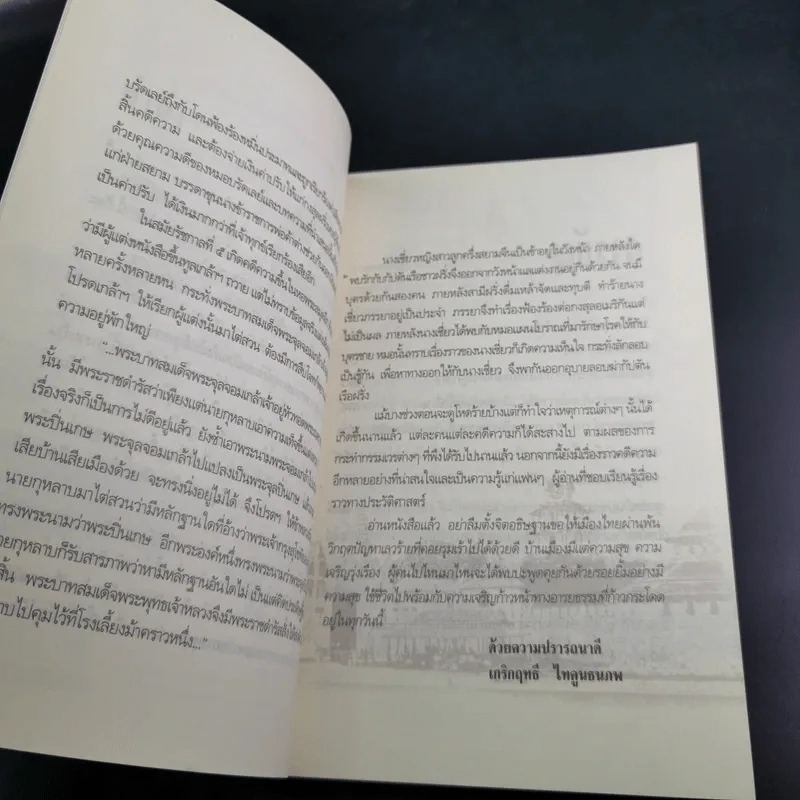 บรัดเลย์ถึงกับโดนฟ้องร้องหมิ่นประมาท
สิ้นคดีความ และต้องจ่ายเงินค่าปรับให้แก่กงสุล
ด้วยคุณความดีของหมอบรัดเลย์และบทความที่
แก่ฝ่ายสยาม บรรดาขุนนางข้าราชการพ่อค้าต่างช่วยกัน
เป็นค่าปรับ ได้เงินมากกว่าที่เจ้าทุกข์เรียกร้องเสียอีก
ในสมัยรัชกาลที่ ๕ เกิดคดีความขึ้นในหอพระสมุด
ว่ามีผู้แต่งหนังสือขึ้นทูลเกล้าฯ ถวาย แต่ไม่ทราบข้อมูล
หลายครั้งหลายหน กระทั่งพระบาทสมเด็จพระจุลจอมเกล้า
โปรดเกล้าฯ ให้เรียกผู้แต่งนั้นมาไต่สวน ต้องมีการสืบ
ความอยู่พักใหญ่
"...พระบาทสมเด็จพระจุลจอมเกล้าเจ้าอยู่หัว
นั้น มีพระราชดำรัสว่าเพียงแต่นายกุหลาบเอาความเท็จ
เรื่องจริงก็เป็นการไม่ดีอยู่แล้ว ยังซ้ำเอาพระนามพระจอมเกล้า
พระปิ่นเกษ พระจุลจอมเกล้าไปแปลงเป็นพระจุลปิ่นเกษ
เสียบ้านเสียเมืองด้วย จะทรงนิ่งอยู่ไม่ได้ จึงโปรดฯ ให้
นายกุหลาบมาไต่สวนว่ามีหลักฐานใดที่อ้างว่าพระเจ้ากรุง
ทรงพระนามว่าพระปิ่นเกษ อีกพระองค์หนึ่งทรงพระนามว่า
นายกุหลาบก็รับสารภาพว่าหามีหลักฐานอันใดไม่ เป็นแต่คิด
สิ้น พระบาทสมเด็จพระพุทธเจ้าหลวงจึงมีพระราชดำรัสสั่งให้
ไปคุมไว้ที่โรงเลี้ยงม้าคราวหนึ่ง..."
นางเชี่ยวหญิงสาวลูกครึ่งสยามจีนเป็นข้าอยู่ในวังหน้า ภายหลังได้
พบรักกับกัปตันเรือชาวฝรั่งจึงออกจากวังหน้าแลแต่งงานอยู่กินด้วยกัน จนมี
บุตรด้วยกันสองคน ภายหลังสามีฝรั่งดื่มเหล้าจัดและทุบตี ทำร้ายนาง
เชี่ยวภรรยาอยู่เป็นประจำ ภรรยาจึงทำเรื่องฟ้องร้องต่อกงสุลอเมริกันแต่
ไม่เป็นผล ภายหลังนางเชี่ยวได้พบกับหมอแผนโบราณที่มารักษาโรคให้กับ
บุตรชาย หมอนั้นทราบเรื่องราวของนางเชี่ยวก็เกิดความเห็นใจ กระทั่งลักลอบ
เป็นชู้กัน เพื่อหาทางออกให้กับนางเชี่ยว จึงพากันออกอุบายลอบฆ่ากัปตัน
เรือฝรั่ง
แม้บางช่วงตอนจะดูโหดร้ายบ้างแต่ก็ทำใจว่าเหตุการณ์ต่างๆ นั้นได้
เกิดขึ้นนานแล้ว แต่ละคนแต่ละคดีความก็ได้สะสางไป ตามผลของการ
กระทำกรรมเวรต่างๆ ที่พึงได้รับไปนานแล้ว นอกจากนี้ยังมีเรื่องราวคดีความ
อีกหลายอย่างที่น่าสนใจและเป็นความรู้แก่แฟนๆ ผู้อ่านที่ชอบเรียนรู้เรื่อง
ราวทางประวัติศาสตร์
อ่านหนังสือแล้ว อย่าลืมตั้งจิตอธิษฐานขอให้เมืองไทยผ่านพ้น
วิกฤตปัญหาเลวร้ายที่คอยรุมเร้าไปได้ด้วยดี บ้านเมืองมีแต่ความสุข ความ
เจริญรุ่งเรือง ผู้คนไปไหนมาไหนจะได้พบปะพูดคุยกันด้วยรอยยิ้มอย่างมี
ความสุข ใช้ชีวิตไปพร้อมกับความเจริญก้าวหน้าทางอารยธรรมที่ก้าวกระโดด
อยู่ในทุกวันนี้
ด้วยความปรารถนาดี
เกริกฤทธิ์ ไทคูนธนภพ